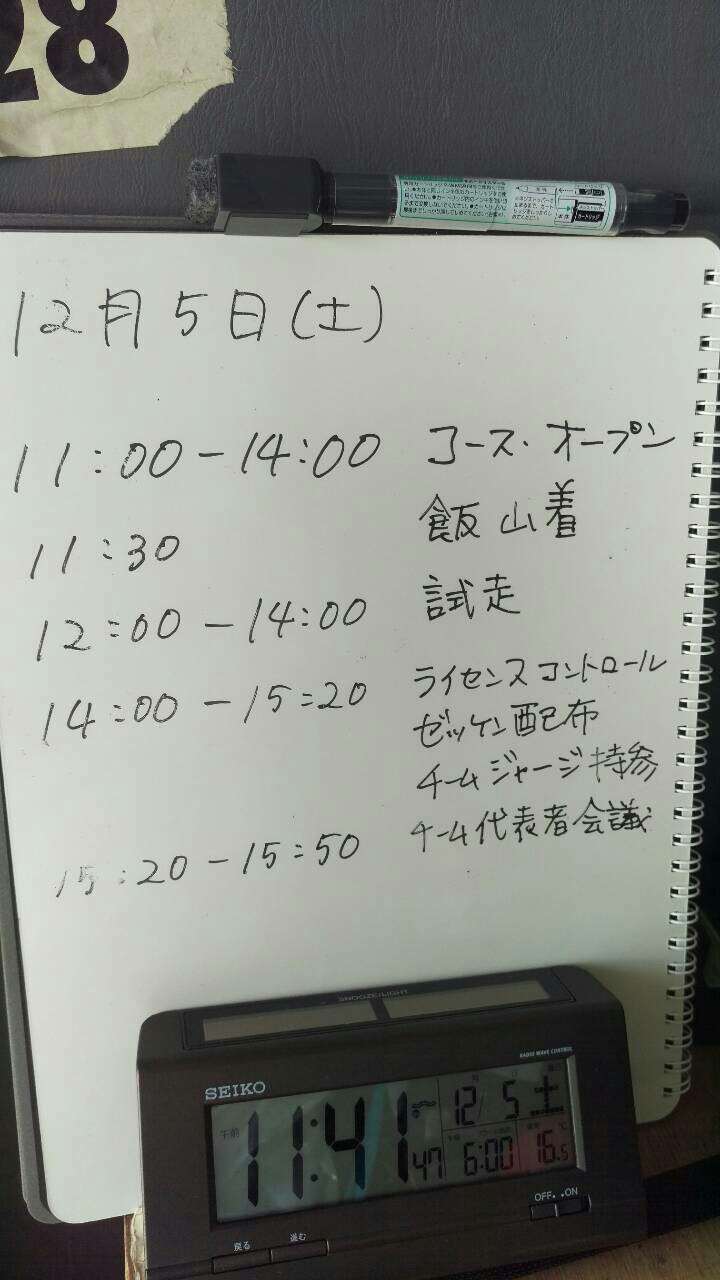 28
12月5日(土)
11:00-14:00 コース・オープン
11:30 飯山着
12:00-14:00 試走
14:00-15:20 ライセンスコントロール
ゼッケン配布
チームジャージ持参
15:20-15:50 チーム代表者会議
SNOOZE/LIGHT
RADIO WAVE CONTROL
SEIKO
午前 11:41 47
12/5 土
6:00 16.5 ℃
OFF ON
戻る 進む